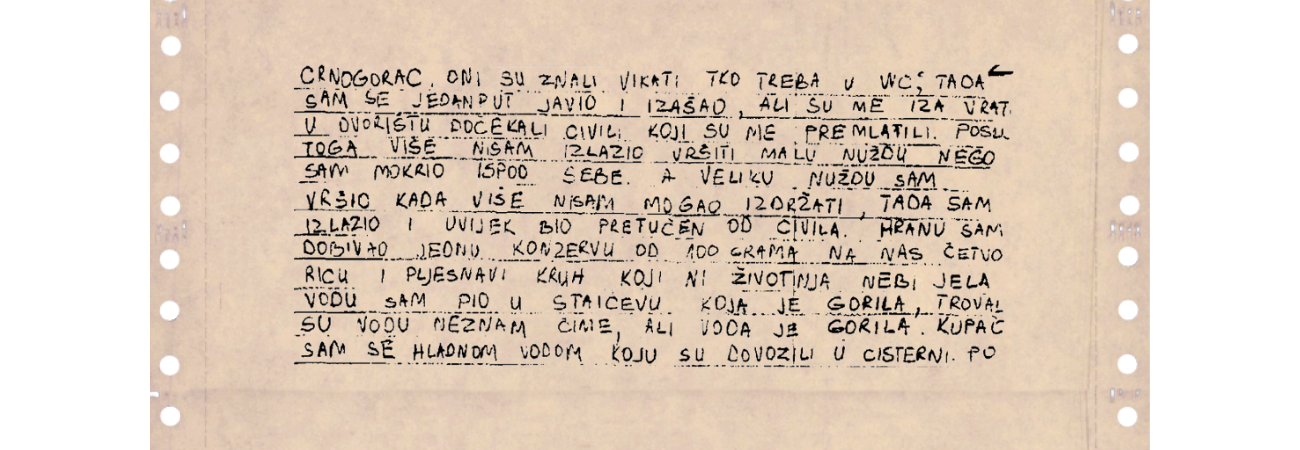 CRNOGORAC. ONI SU ZNALI VIKATI TKO TREBA U WC, TADA
SAM SE JEDANPUT JAVIO I IZAŠAO, ALI SU ME IZA VRAT.
U DVORIŠTU DOČEKALI CIVILI KOJI SU ME PREMLATILI. POSLI
TOGA VIŠE NISAM IZLAZIO VRŠITI MALU NUŽDU NEGO
SAM MOKRIO ISPOD SEBE. A VELIKU NUŽDU SAM
VRŠIO KADA VIŠE NISAM MOGAO IZDRŽATI, TADA SAM
IZLAZIO I UVIJEK BIO PRETUČEN OD CIVILA. HRANU SAM
DOBIVAO JEDNU KONZERVU OD 100 GRAMA NA NAS ČETVO
RICU I PLJESNAVI KRUH KOJI NI ŽIVOTINJA NEBI JELA
VODU SAM PIO U STAIĆEVU KOJA JE GORILA, TROVAL
SU VODU NEZNAM ČIME, ALI VODA JE GORILA. KUPAO
SAM SE HLADNOM VODOM KOJU SU DOVOZILI U CISTERNI. PO